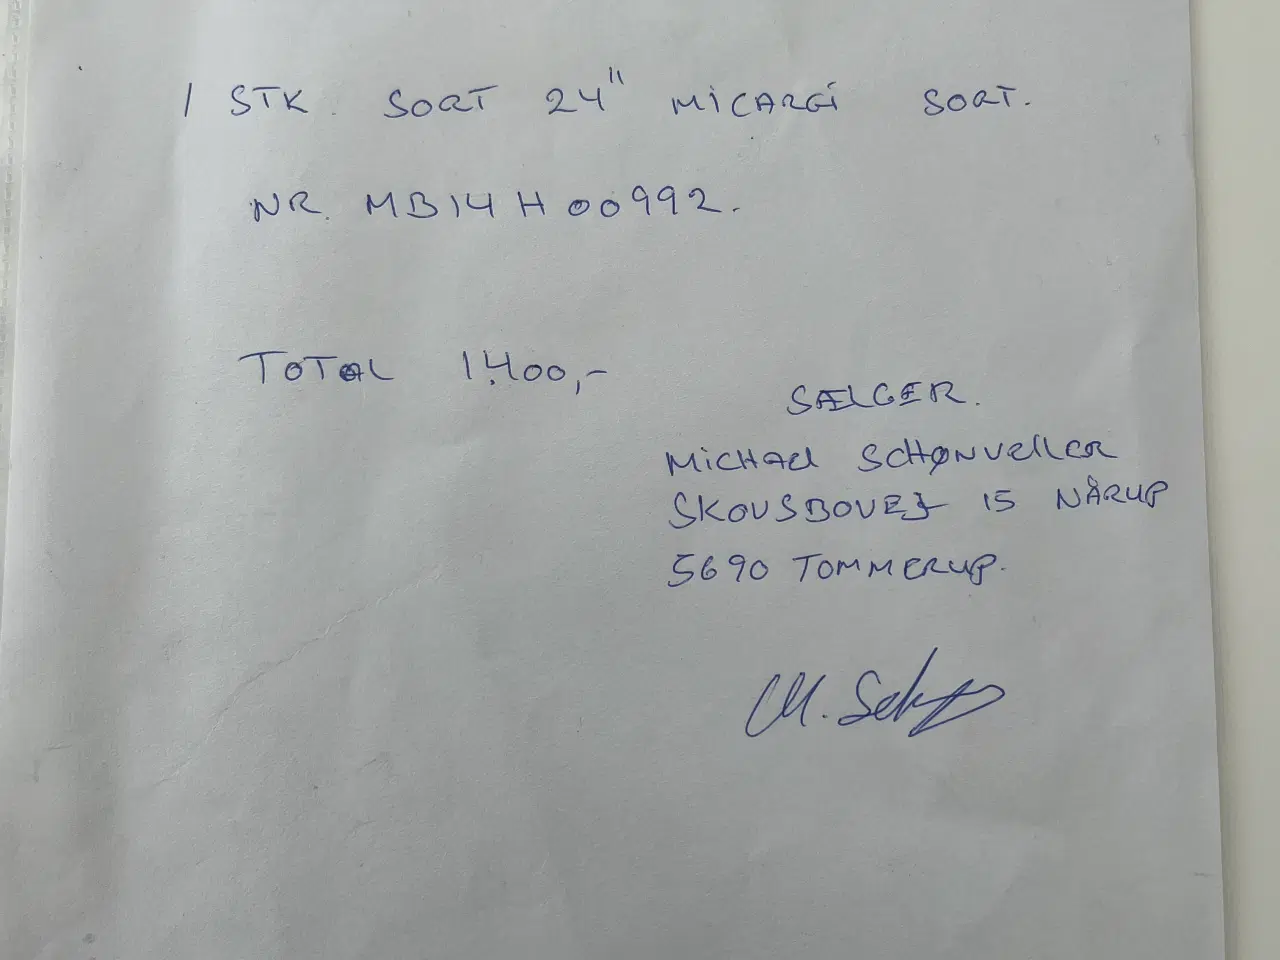 1 STK. SORT 24" MICARGI SORT.
NR. MB14H00992.
TOTAL 1.400,-
SÆLGER.
MICHAEL SCHØNVELLER
SKOVSBOVEJ 15 NÅRUP
5690 TOMMERUP.